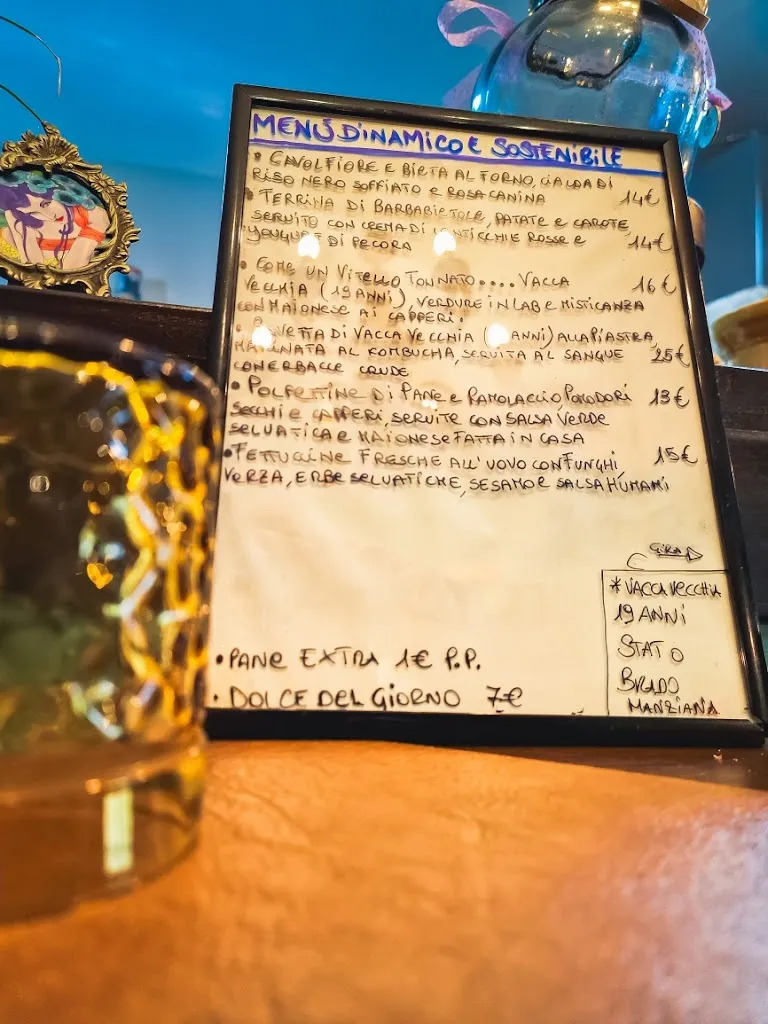 MENÙ DINAMICO E SOSTENIBILE
• CAVOLFIORE E BIETA AL FORNO, CIALDA DI
RISO NERO SOFFIATO E ROSA CANINA 14€
• TERRINA DI BARBABIETOLE, PATATE E CAROTE,
SERVITO CON CREMA DI LENTICCHIE ROSSE E
YOUGURT DI PECORA 14€
• COME UN VITELLO TONNATO.... VACCA 16€
VECCHIA (19 ANNI), VERDURE IN LAB E MISTICANZA
CON MAIONESE AI CAPPERI.
DI VACCA VECCHIA ( ANNI) ALLA PIASTRA,
MARINATA AL KOMBUCHA, SERVITA AL SANGUE 25€
CON ERBACCE CRUDE
• POLPETTINE DI PANE E RAMOLACCIO, POMODORI 13€
SECCHI E CAPPERI, SERVITE CON SALSA VERDE
SELVATICA E MAIONESE FATTA IN CASA
• FETTUCINE FRESCHE ALL'UOVO CON FUNGHI, 15€
VERZA, ERBE SELVATICHE, SESAMO E SALSA HUMAMI
GIRA
* VACCA VECCHIA
19 ANNI
STATO
BRADO
MANZIANA
• PANE EXTRA 1€ P.P.
• DOLCE DEL GIORNO 7€